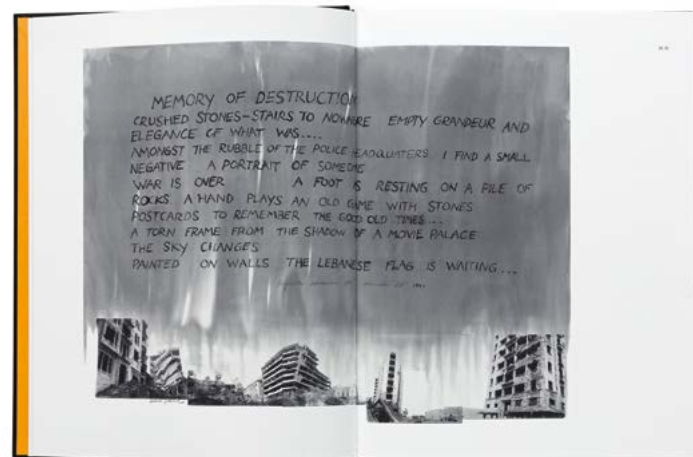 MEMORY OF DESTRUCTION
CRUSHED STONES-STAIRS TO NOWHERE EMPTY GRANDEUR AND
ELEGANCE OF WHAT WAS....
AMONGST THE RUBBLE OF THE POLICE HEADQUATERS I FIND A SMALL
NEGATIVE A PORTRAIT OF SOMEONE
WAR IS OVER A FOOT IS RESTING ON A PILE OF
ROCKS. A HAND PLAYS AN OLD GAME WITH STONES
POSTCARDS TO REMEMBER THE GOOD OLD TIMES...
A TORN FRAME FROM THE SHADOW OF A MOVIE PALACE
THE SKY CHANGES
PAINTED ON WALLS THE LEBANESE FLAG IS WAITING...